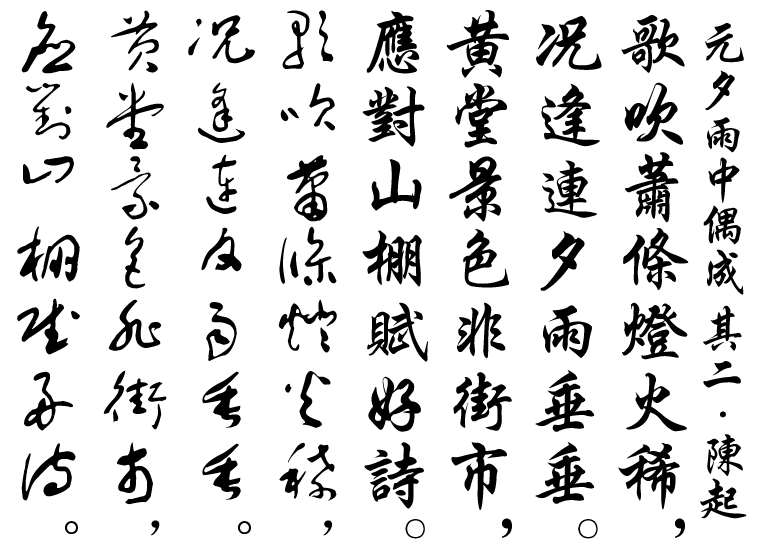 元夕雨中偶成 其二·陳起
歌吹蕭條燈火稀，
況逢連夕雨垂垂。
黃堂景色非街市，
應對山棚賦好詩。
歌吹蕭條燈火稀，
況逢連夕雨垂垂。
黃堂景色非街市，
應對山棚賦好詩。